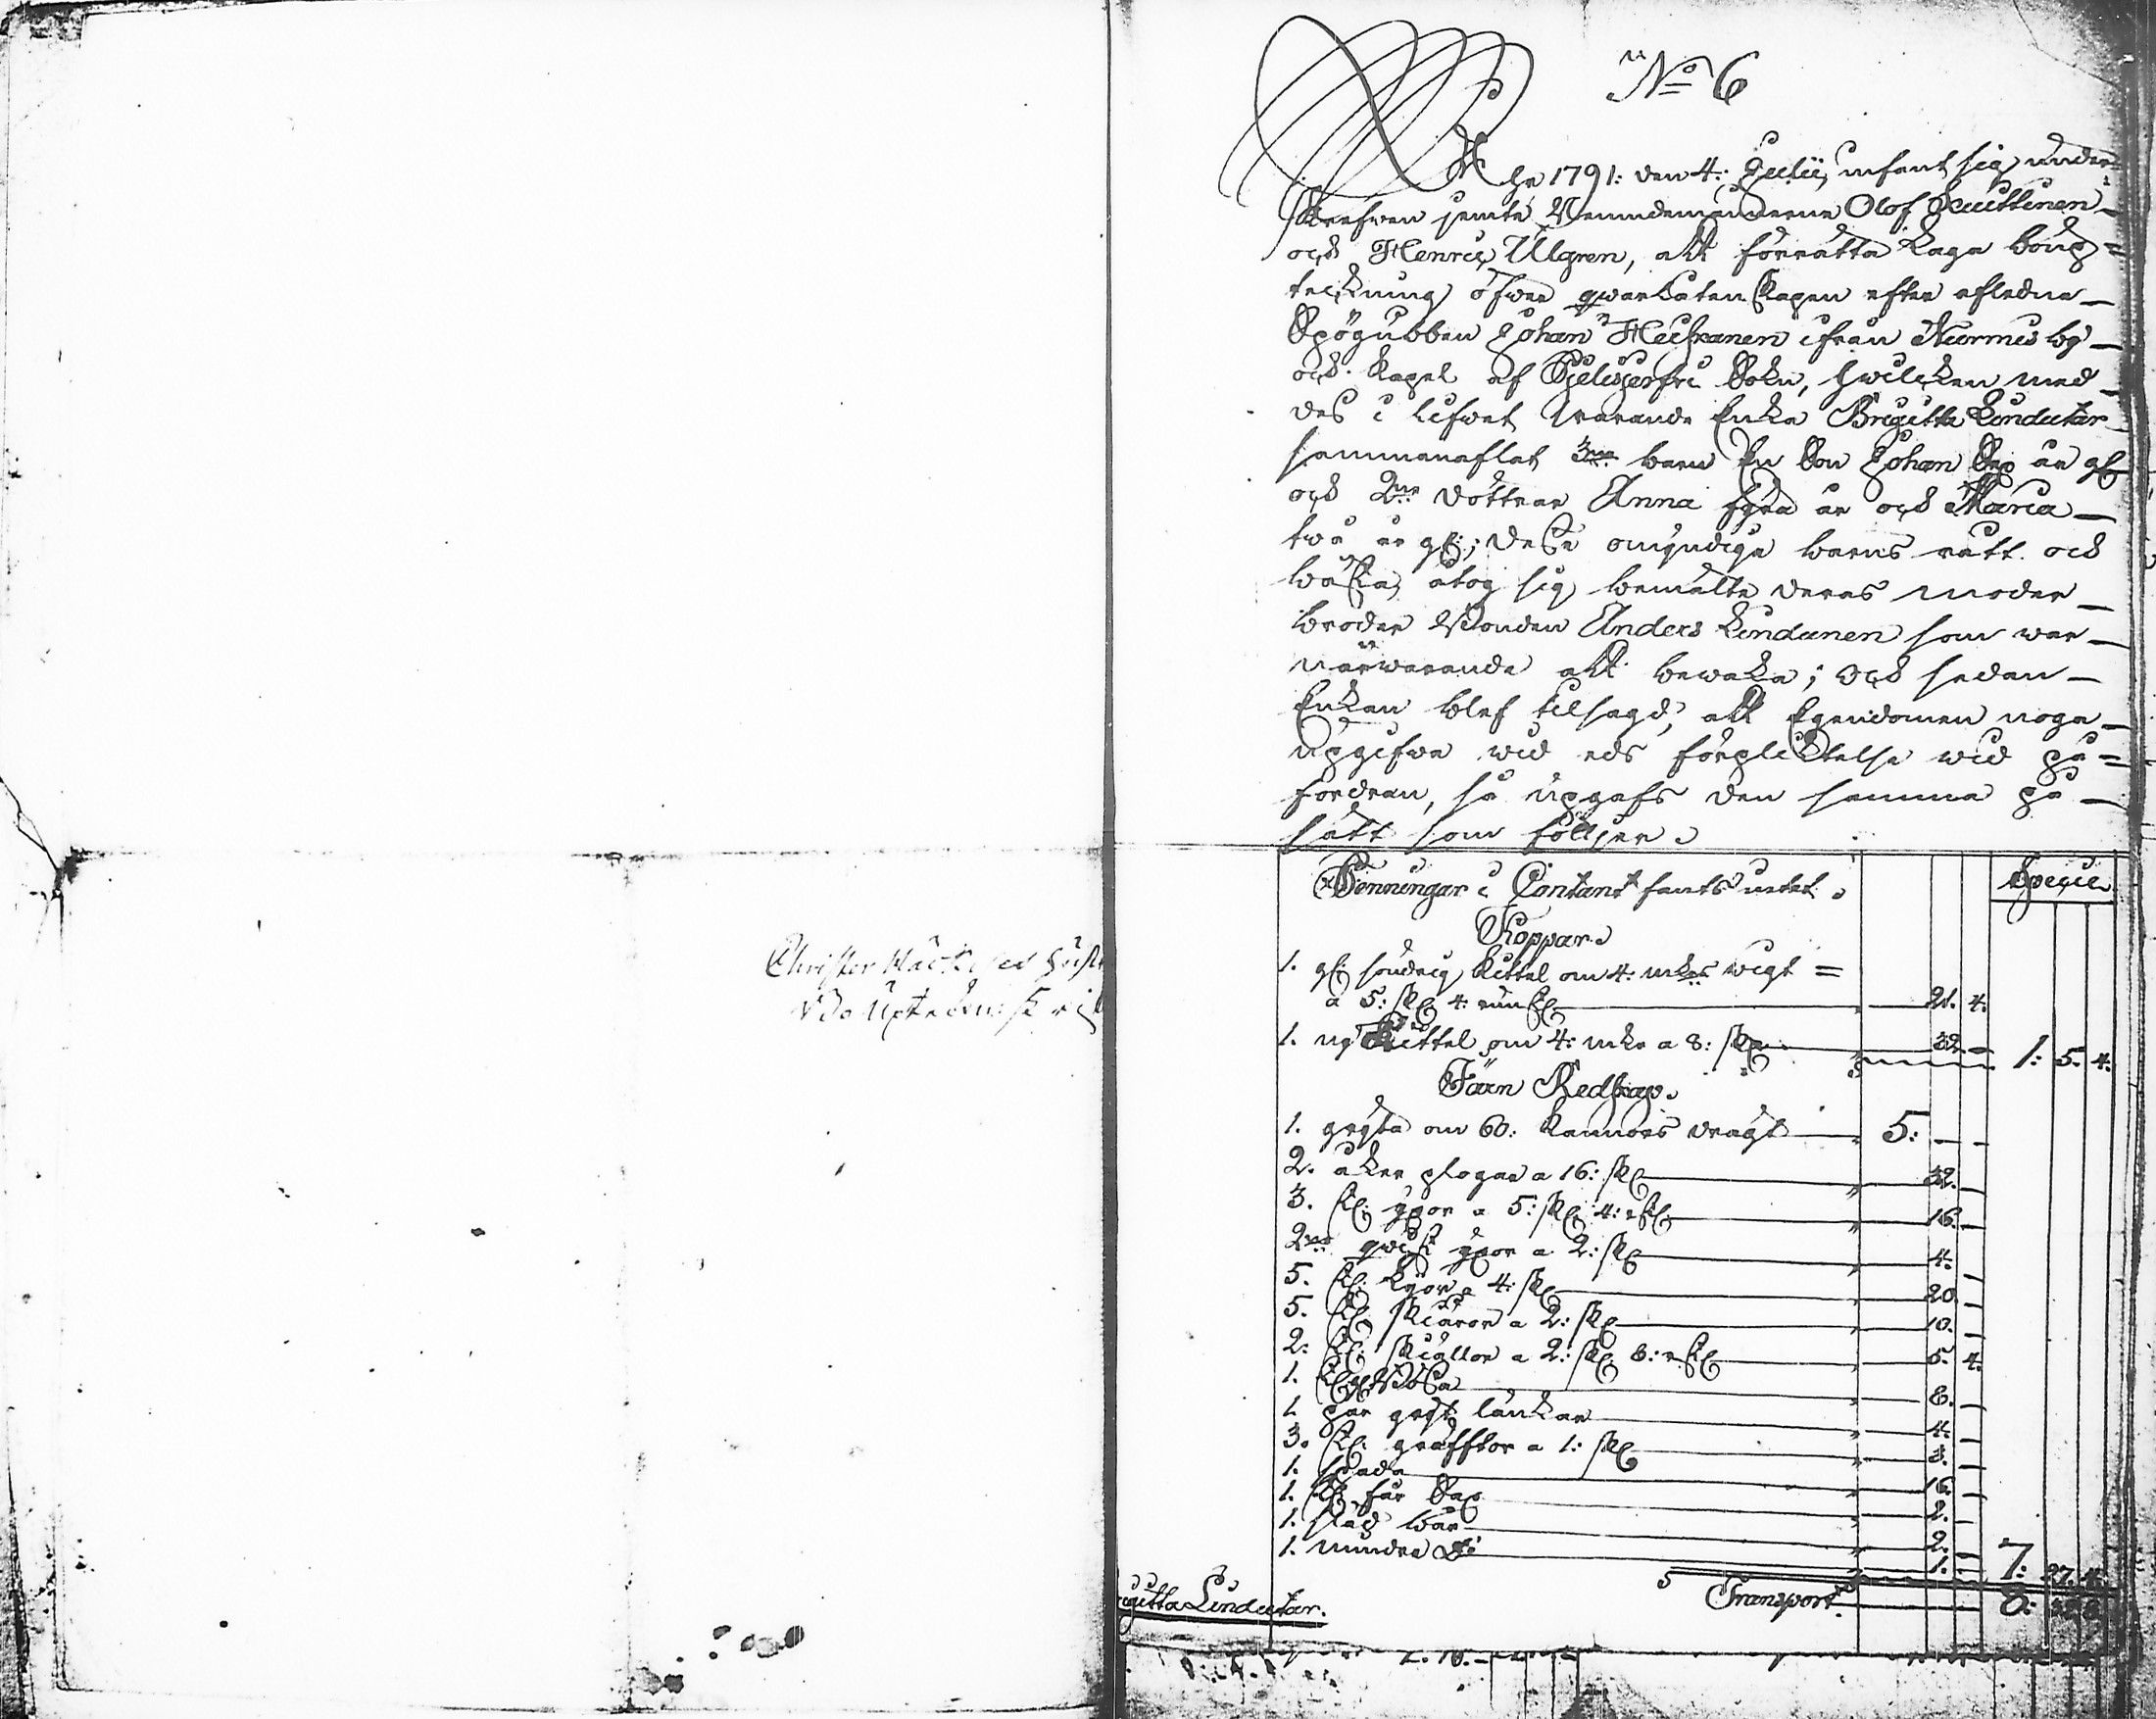 No 6
Åhr 1791: den 4: Julii, infant sig under=
skrefwen jemte Nemndemännerne Olof Kuittinen
och Henric Ulgren, att förrätta Laga boup=
teckning öfwer qwarlåtenskapen efter afledne
Spögubben Johan Heiskanen ifrån Nurmis by
och Kapel af Pjelisjerfwi Sokn, hwilcken med
des i lifwet warande Enka Brigitta Lindutar
sammanaflat 3ne barn En Son Johan Sex år gl
och 2ne döttrar Anna fyra år och Maria
två år gl:; deße omyndiga barns rätt och
bästa, åtog sig bemälte deras moder
broder Bonden Anders Lindunen som war
närwarande att bewaka; och sedan
Enkan blef tilsagd, att Egendomen noga
upgifwa wid eds förplicktelse wid på=
fordran, så upgafs den samma på
sätt som följer.
Penningar i Contant fants intet. Specie
Koppar.
1. gl: söndrig Kittel om 4: mkrs wigt =
a 5: sk 4: runst 21. 4.
1. ny Kittel om 4: mkr a 8: sk 32. — 1: 5. 4.
Järn Redskap.
1. gryta om 60: Kannors drägt 5: — —
2. åker plogar a 16: sk 32. —
3. st: yxor a 5: sk 4: rst 16. —
2ne qwist yxor a 2: sk 4. —
5. st: Lijor a 4: sk 20. —
5. st: skiäror a 2: sk 10. —
2. st: skiällor a 2: sk 8: rst 5. 4.
1. 8. —
1 par gryt länkar 4. —
3. st: gräfftor a 1: sk 3. —
1. spada 16. —
1. st. får Sax 2. —
1. städ 2. —
1. mindre do 1. — 7: 27. 4.
Transport 8:
igitta Lindutar.
Christer